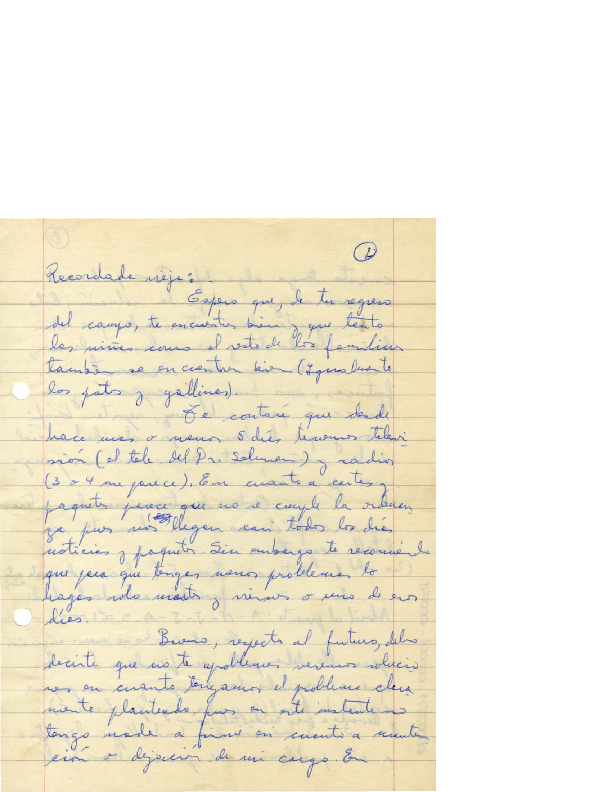 1
Recordada vieja:
Espero que, de tu regreso
del campo, te encuentres bien y que tanto
las niñas como el resto de los familiares
también se encuentren bien (Igualmente
los patos y gallinas).
Te contaré que desde
hace mas o menos 5 días tenemos televi-
sión (el tele del Dr. Salman) y radios
(3 o 4 me parece). En cuanto a cartas y
paquetes parece que no se cumple la ordenan-
za pues nos llegan casi todos los días
noticias y paquetes. Sin embargo te recomiendo
que para que tengas menos problemas lo
hagas solo martes y viernes o uno de esos
días.
Bueno, respecto al futuro, debo
decirte que no te aproblemes veremos solucio
nes en cuanto tengamos el problema clara
mente planteado pues en este instante no
tengo nada a firme en cuanto a manten
ción o dejación de mi cargo. En